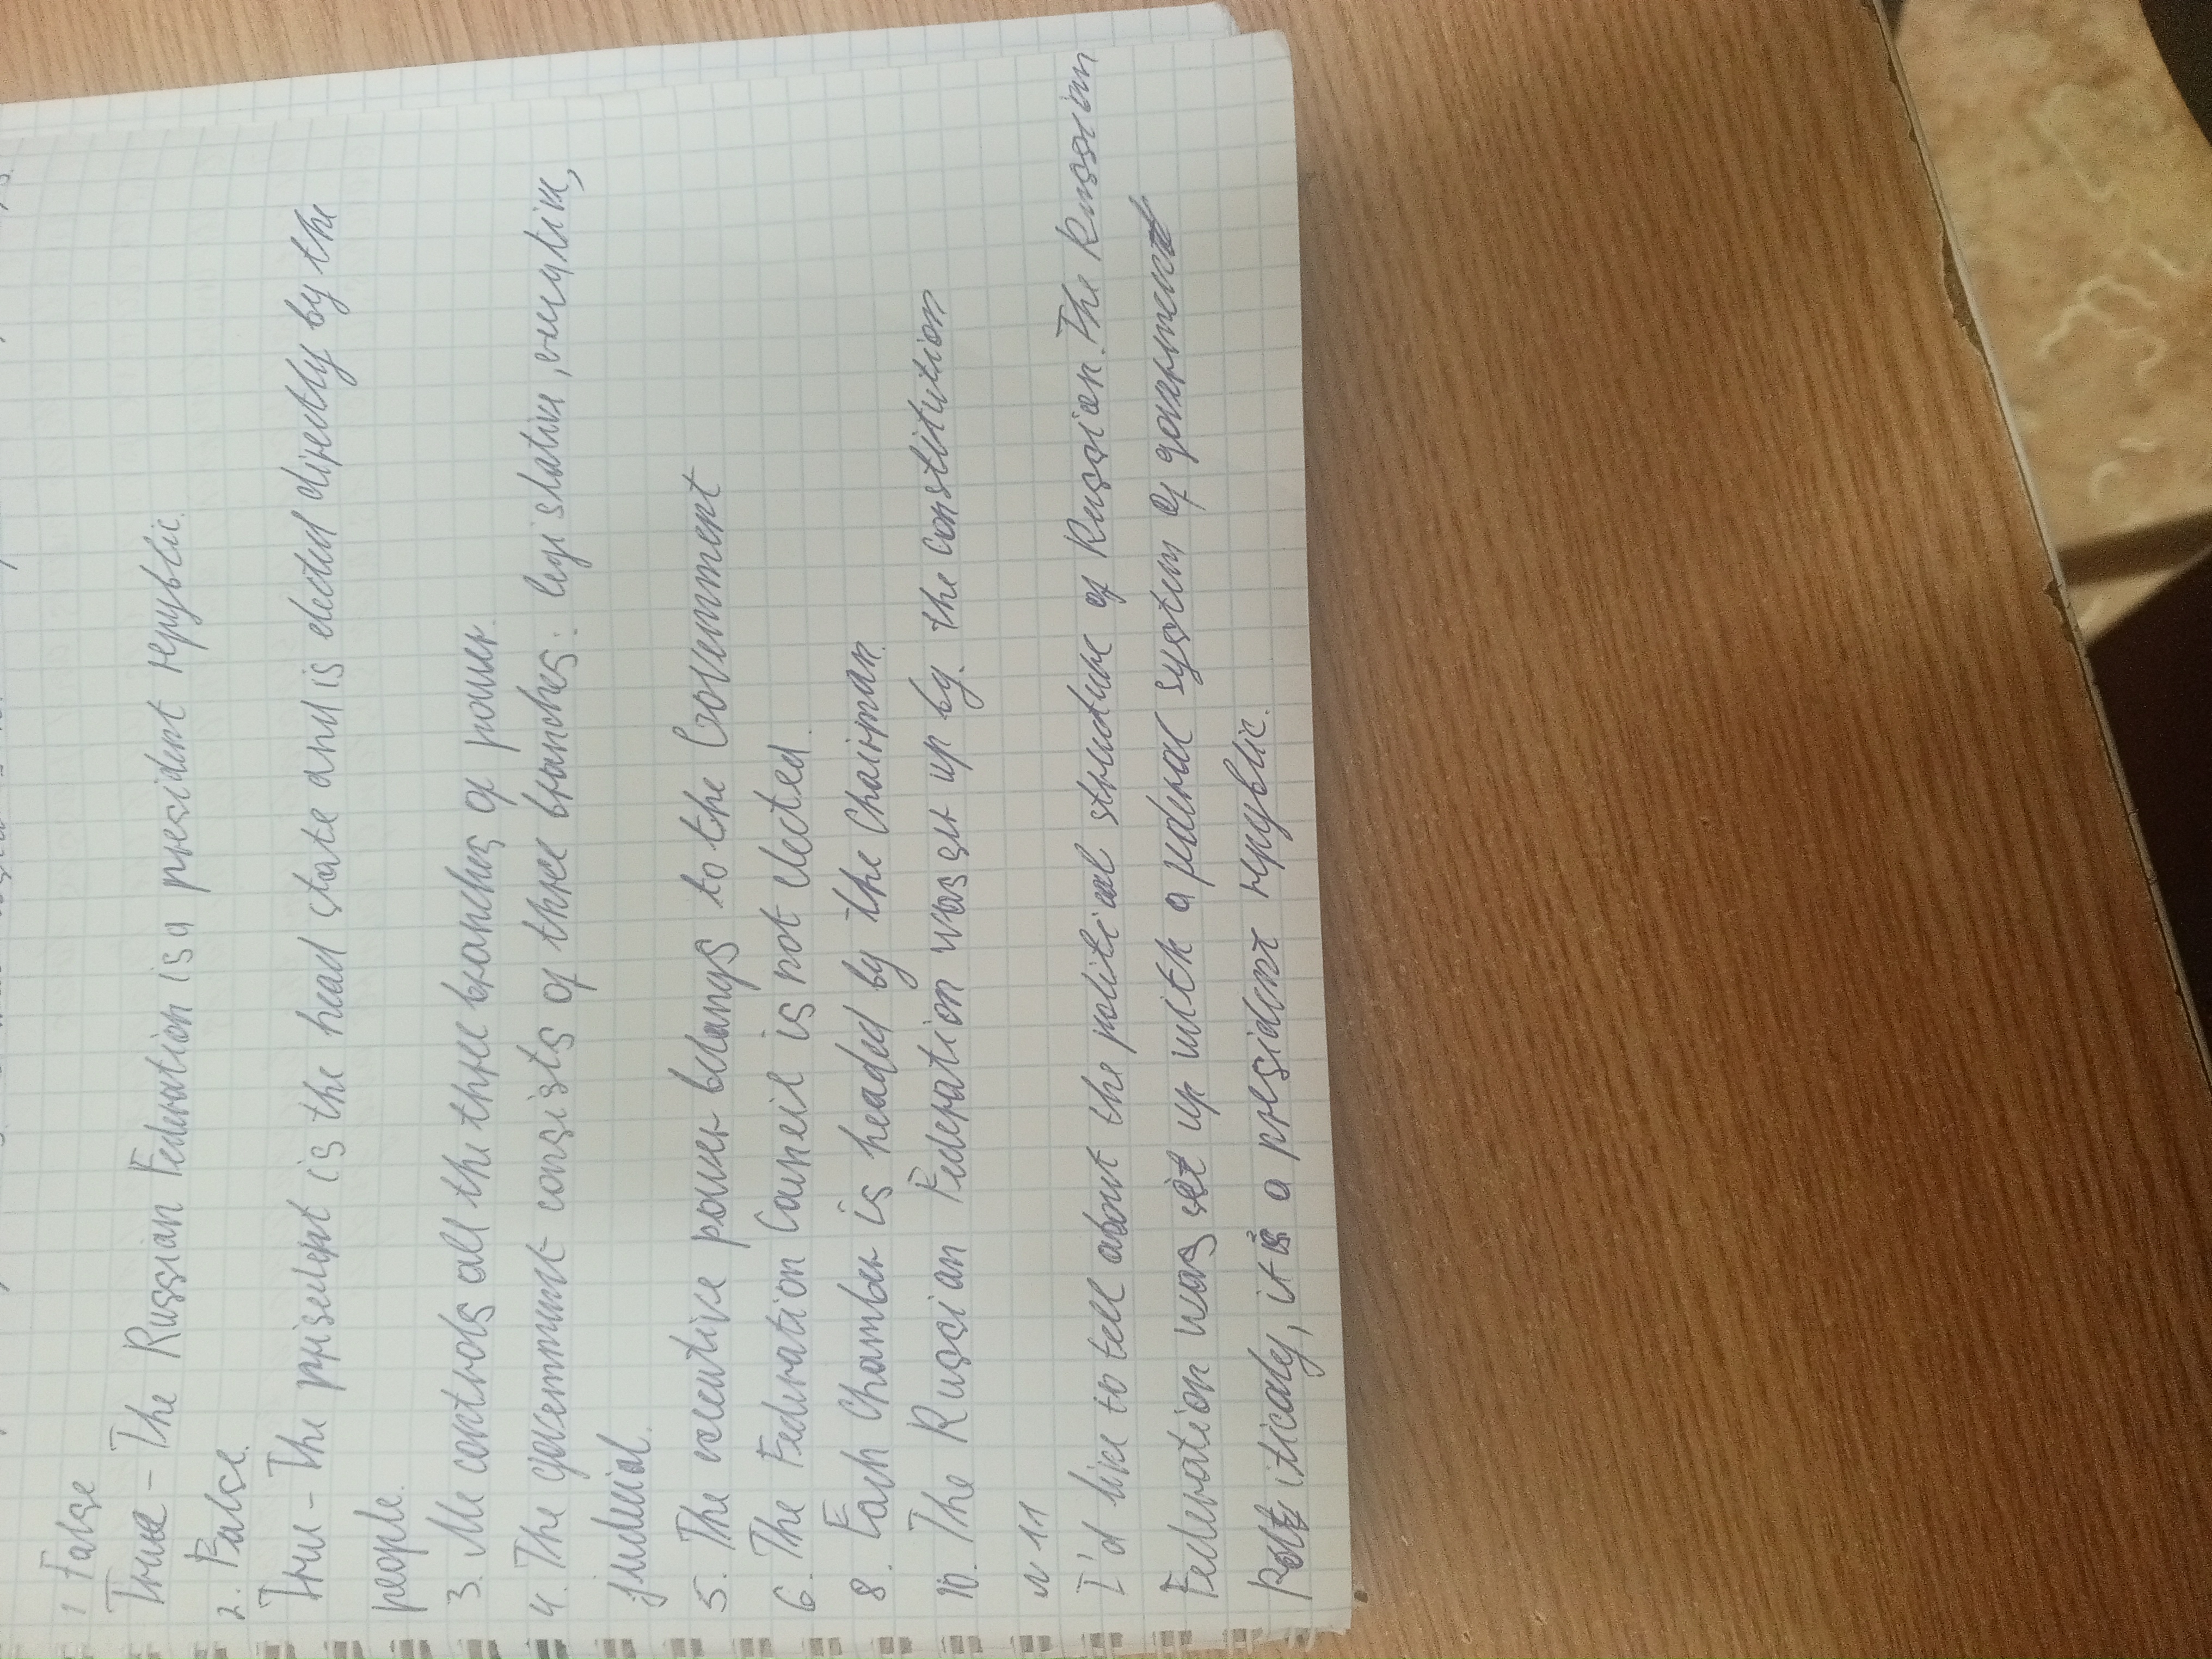 1 False
True - The Russian Federation is a president repyblic.
2. False.
True - The prisedent is the head state and is elected directly by the
people.
3. He controls all the three branches of power.
4. The government consists of three branches: legislative, executive,
judicial.
5. The executive power belangs to the Government
6. The Federation Councie is not elected.
8. Each Chamber is headed by the Chairman.
10. The Russian Federation was set up by. the Constitution
N 11
I'd like to tell about the political structure of Russian. The Russian
Federation was set up with a federal system of government
Politicaly, it is a president repyblic.